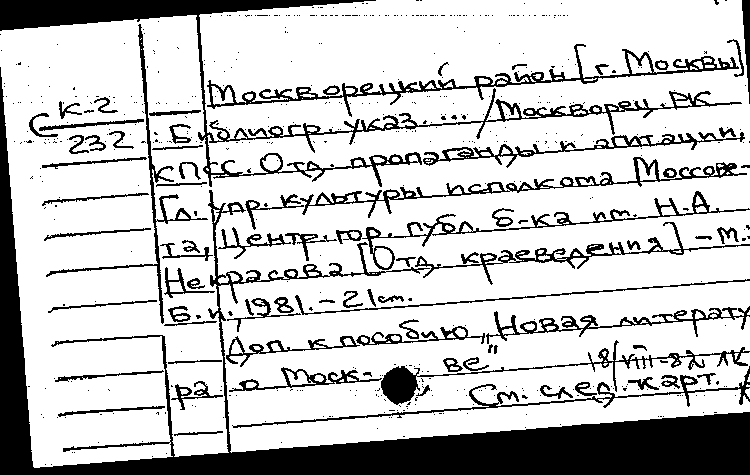 Москворецкий район [г. Москвы]
К-2
232
: Библиогр. указ. ... / Москворец. РК
КПСС. Отд. пропаганды и агитации,
Гл. упр. культуры исполкома Моссове-
та, Центр. гор. публ. б-ка им. Н.А.
Некрасова. [Отд. краеведения] - М.:
Б. и. 1981. - 21 ст.
Доп. к пособию „Новая литерату
ра о Моск- ве".
18/VIII-82
См. след. карт.